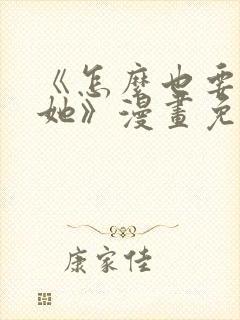 《怎麼也要
她》漫畫免
康家佳